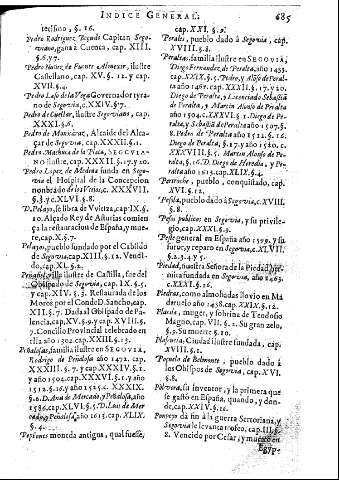 INDICE GENERAL.
685
tecismo, §. 16.
Pedro Rodriguez Bezudo Capitan Segoviano,
gana à Cuenca, cap. XIII.
§. 6. y 7.
Pedro Nuñez de Fuente Almexir, ilustre
Castellano, cap. XV. §. 12. y cap.
XVII. §. 4.
Pedro Laso de la Vega Governador tyrano
de Segovia, c. XXIV. §. 7.
Pedro de Cuellar, ilustre Segoviano, cap.
XXXI. §. 8.
Pedro de Monxaraz, Alcaide del Alcaçar
de Segovia, cap. XXXIII. §. 11.
Pedro Machuca de la Plaza, SEGOVIANO
ilustre, cap. XXXII. §. 17. y 20.
Pedro Lopez, de Medina funda en Segovia
el Hospital de la Concepcion
nonbrado de los Viejos, c. XXXVII.
§. 3. y c. XLVI. §. 8.
D. Pelayo, se libra de Vuitiza, cap. IX. §.
10. Alçado Rey de Asturias comiença
la restauracion de España, y muere,
cap. X. §. 7.
Pelayos, pueblo fundado por el Cabildo
de Segovia, cap. XIII. §. 12. Vendido,
cap. XL. §. 2.
Peñafiel, villa ilustre de Castilla, fue del
Obispado de Segovia, cap. IX. §. 5,
y cap. XIV. §. 3. Restaurada de los
Moros por el Conde D. Sancho, cap.
XII. §. 7. Dada al Obispado de Palencia,
cap. XV. §. 9. y cap. XVIII. §.
7. Concilio Provincial celebrado en
ella año 1302. cap. XXIII. §. 13.
Peñalosas, familia ilustre en SEGOVIA,
Rodrigo de Peñalosa año 1472. cap.
XXXIII. §. 7. y cap. XXXIV. §. 1.
y año 1504. cap. XXXVI. §. 1. y año
1512. §. 16. y año 1525. c. XXXIX.
§. 6. D. Ana de Mercado, y Peñalosa, año
1586. cap. XLVI. §. 5. D. Luis de Mercado,
y Peñalosa, año 1613. cap. XLIX.
§. 4.
Pepiones moneda antigua, qual fuese,
cap. XXI. §. 9.
Perales, pueblo dado à Segovia, cap.
XVIII. §. 8.
Peraltas, familia ilustre en SEGOVIA,
Diego Fernandez, de Peralta, año 1433.
cap. XXIX. §. 5. Pedro, y Alonso de Peralta
año 1468. cap. XXXII. §. 3. Diego
de Peralta, y Licenciado Sebastiã
de Peralta, y Martin Alonso de Peralta
año 1504. c. LXXVI. §. 1. Diego de Peralta,
y Sebastiã de Peralta año 1507. §.
8. Pedro de Peralta año 1522. §. 16.
Diego de Peralta, §. 17. y año 1520. c.
XXXVIII. §. 5. Martin Alonso de Peralta,
§. 16. D. Diego de Heredia, y Peralta
año 1613. cap. XLIX. §. 4.
Pastrocho, pueblo, conquistado, cap.
XVI. §. 12.
Pesilda, pueblo dado à Segovia, c. XVIII.
§. 8.
Pesos publicos en Segovia, y su privilegio,
cap. XXXI. §. 9.
Peste general en España año 1599. y su
furor, y reparo en Segovia, c. XLVIII.
§. 2. 3. 4. y 5.
Piedad, nuestra Señora de la Piedad, hermita
fundada en Segovia, año 1463.
c. XXXI. §. 16.
Piedras, como almohadas llovio en Maderuelo
año 1438. cap. XXIX. §. 12.
Placila, muger, y sobrina de Teodosio
Magno, cap. VII. §. 2. Su gran zelo,
§. 3. Su muerte §. 10.
Plasencia, Ciudad ilustre fundada, cap.
XVIII. §. 1.
Poquelo de Belmonte, pueblo dado à
los Obispos de Segovia, cap. XVI.
§. 8.
Polvora, su inventor, y la primera que
se gastò en España, quando, y donde,
cap. XXIV. §. 16.
Pompeyo dà fin à la guerra Sertoriana, y
Segovia le levanta trofeo, cap. III. §.
8. Vencido por Cesar, y muerto en
Egyp-